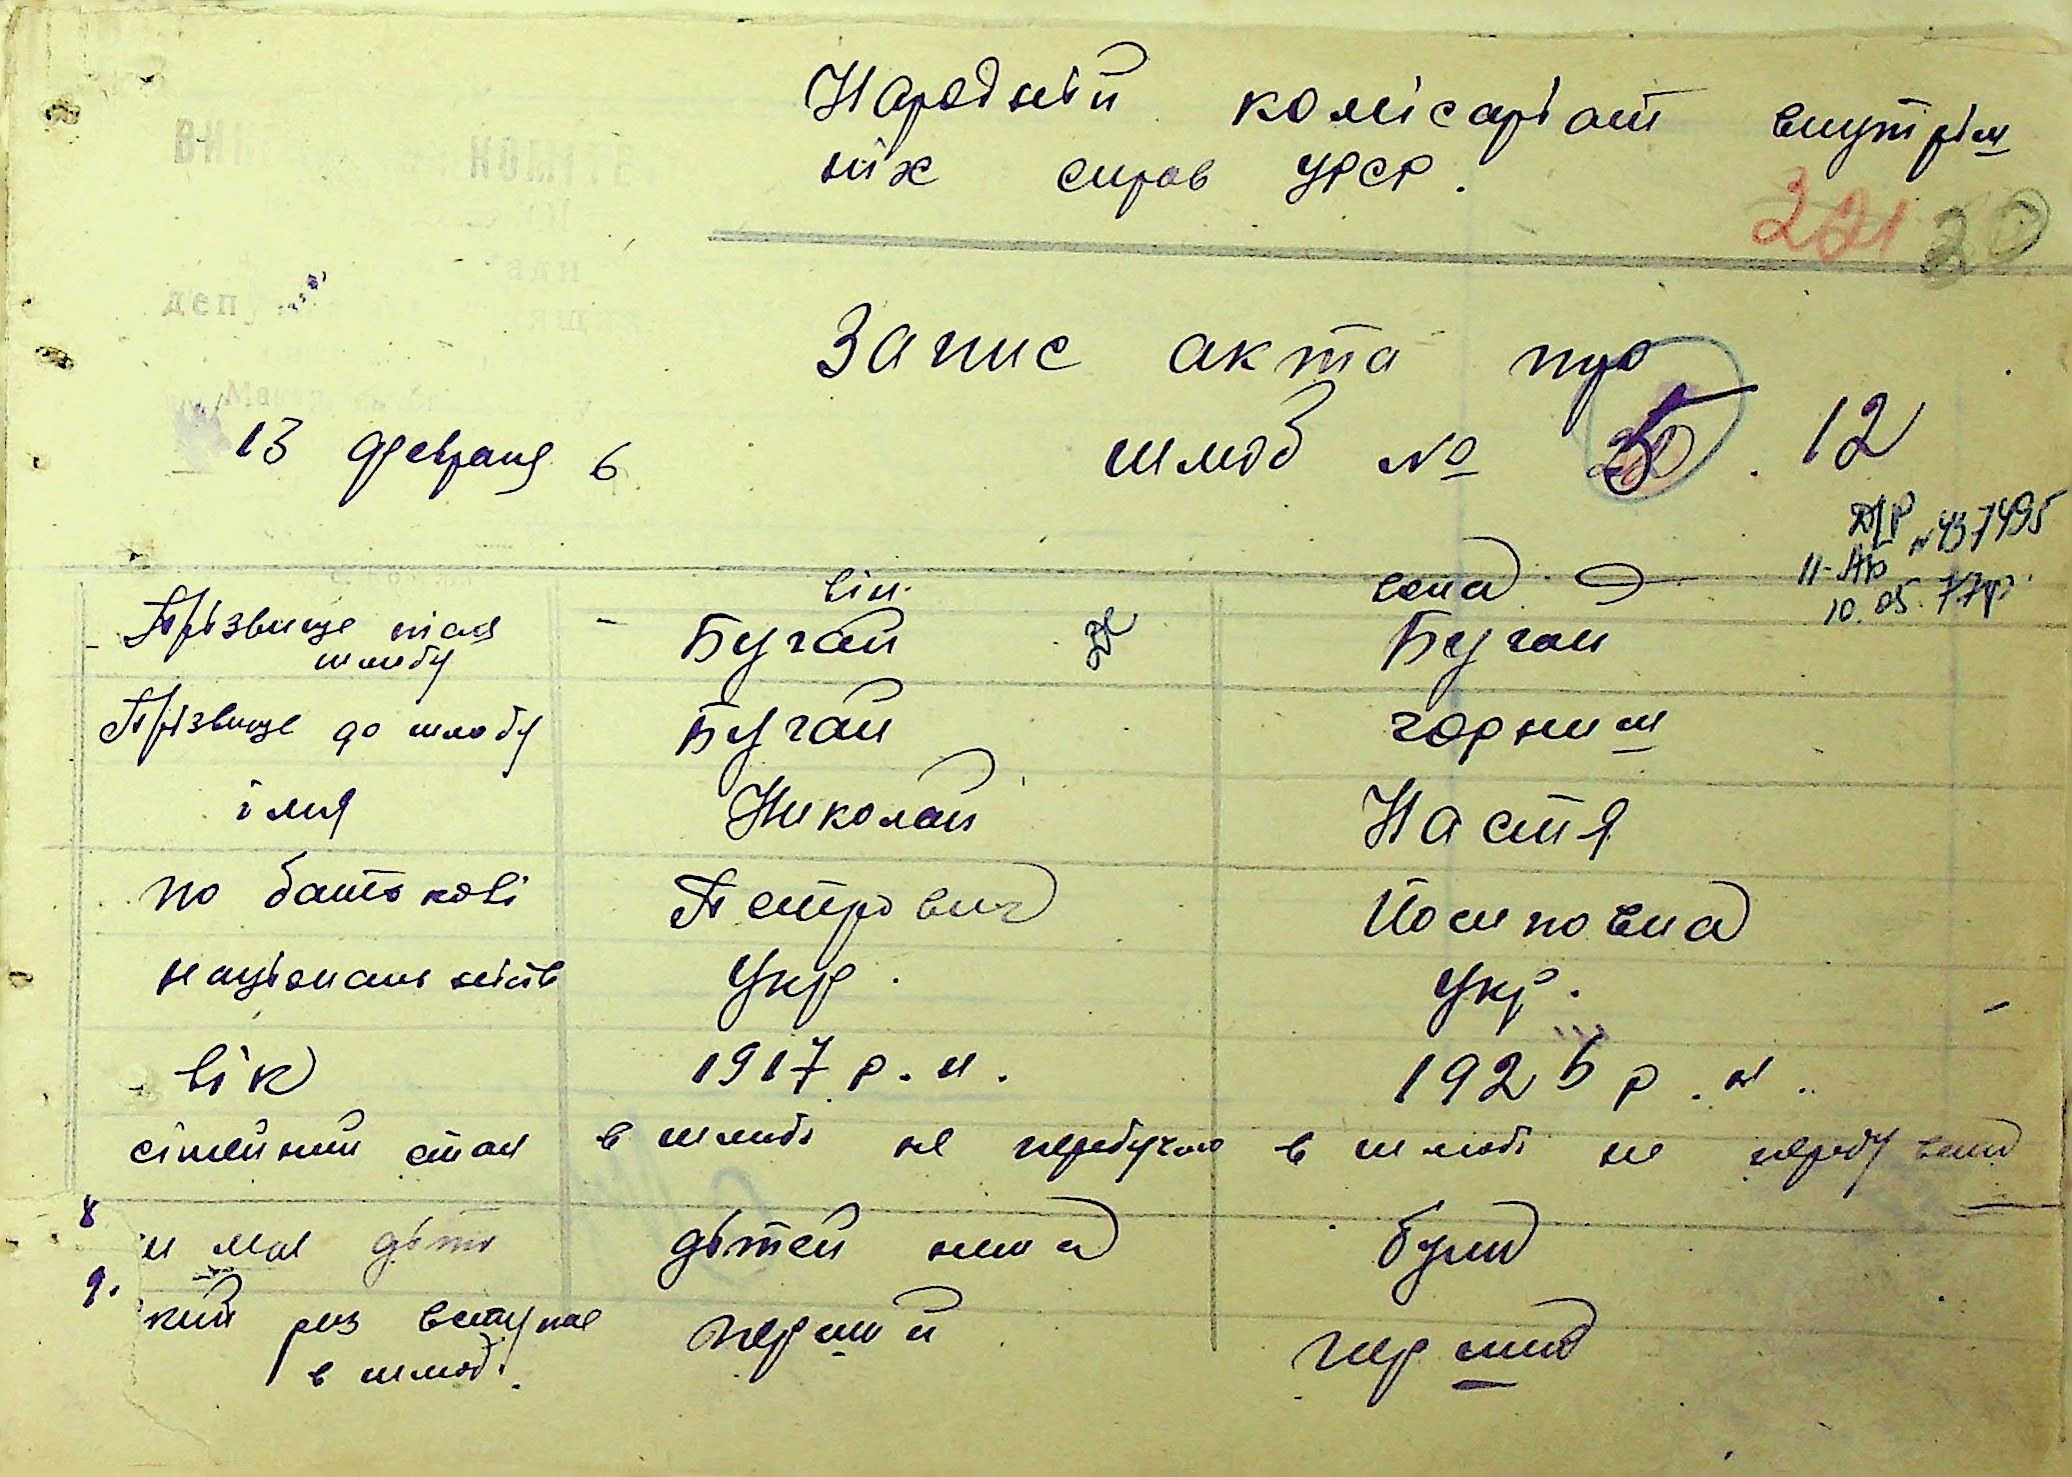 Народній комісаріат внутріш
ніх справ УРСР.
221 20
Запис акта про
13 февраля 6 шлюб № 12
Д/Р № 437495
II-АБ
10.05.77р.
він. вона
Прізвище після шлюбу Бугай Бугай
Прізвище до шлюбу Бугай горниш
імя Николай Настя
по батькові Петрович Йосиповна
національність Укр. Укр.
вік 1917 р.н. 1925 р.н.
сімейний стан в шлюбі не перебував в шлюбі не перебувала
8 и має діти дітей нема
9. кий раз вступає перший перша
в шлюб.